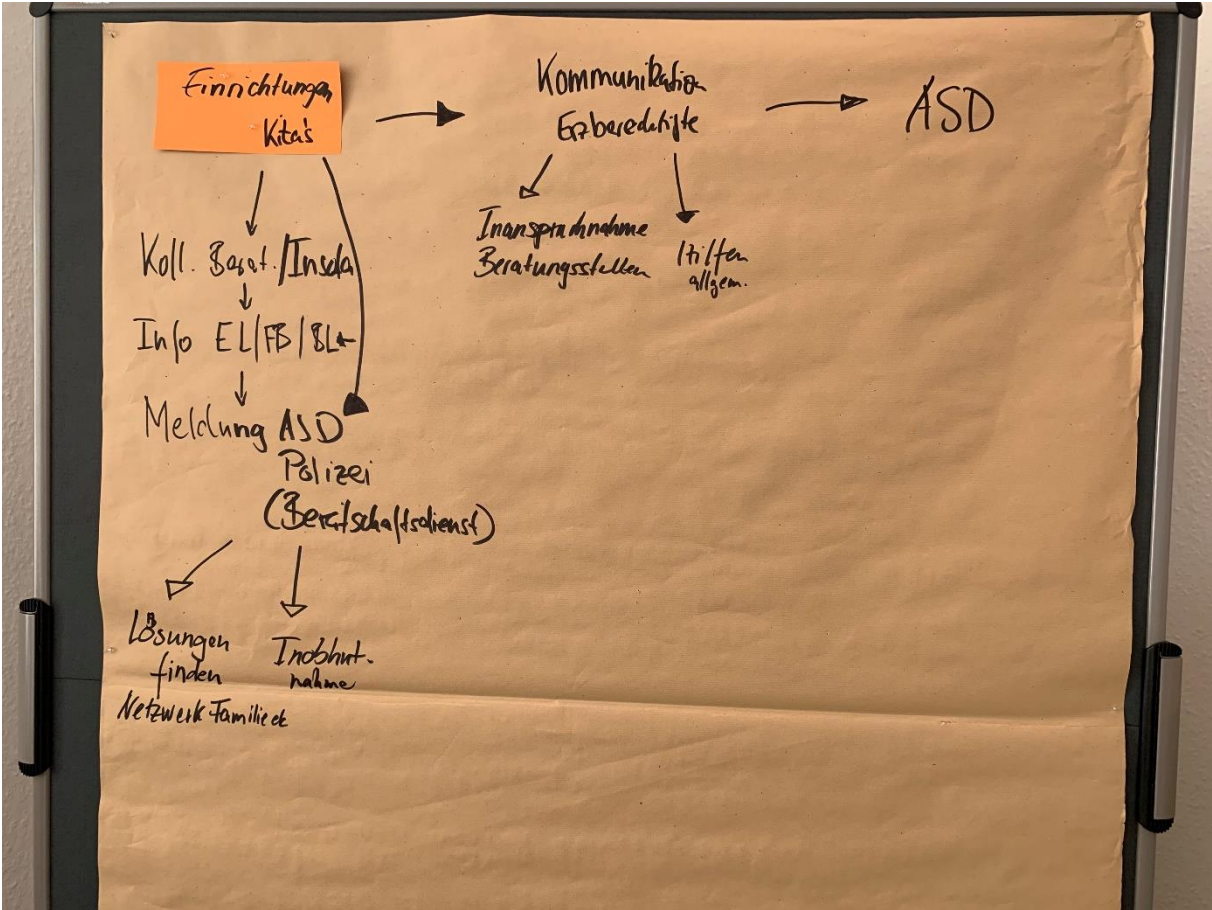 Einrichtungen
Kita's
Kommunikation
Erzberechtigte
ASD
Inanspruchnahme
Beratungsstellen
Hilfen
allgem.
Koll. Berat./Insofa
Info EL/FB/BL
Meldung ASD
Polizei
(Bereitschaftsdienst)
Lösungen
finden
Netzwerk Familie etc
Inobhut-
nahme